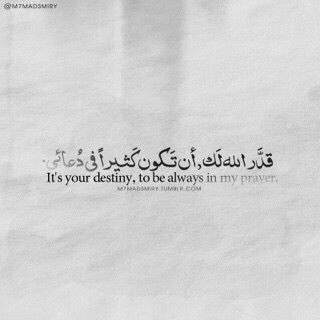 @M7MADSMIRY
قدَّر الله لَك, أن تَكون كَثيراً في دُعائي.
It's your destiny, to be always in my prayer.
M7MADSMIRY.TUMBLR.COM